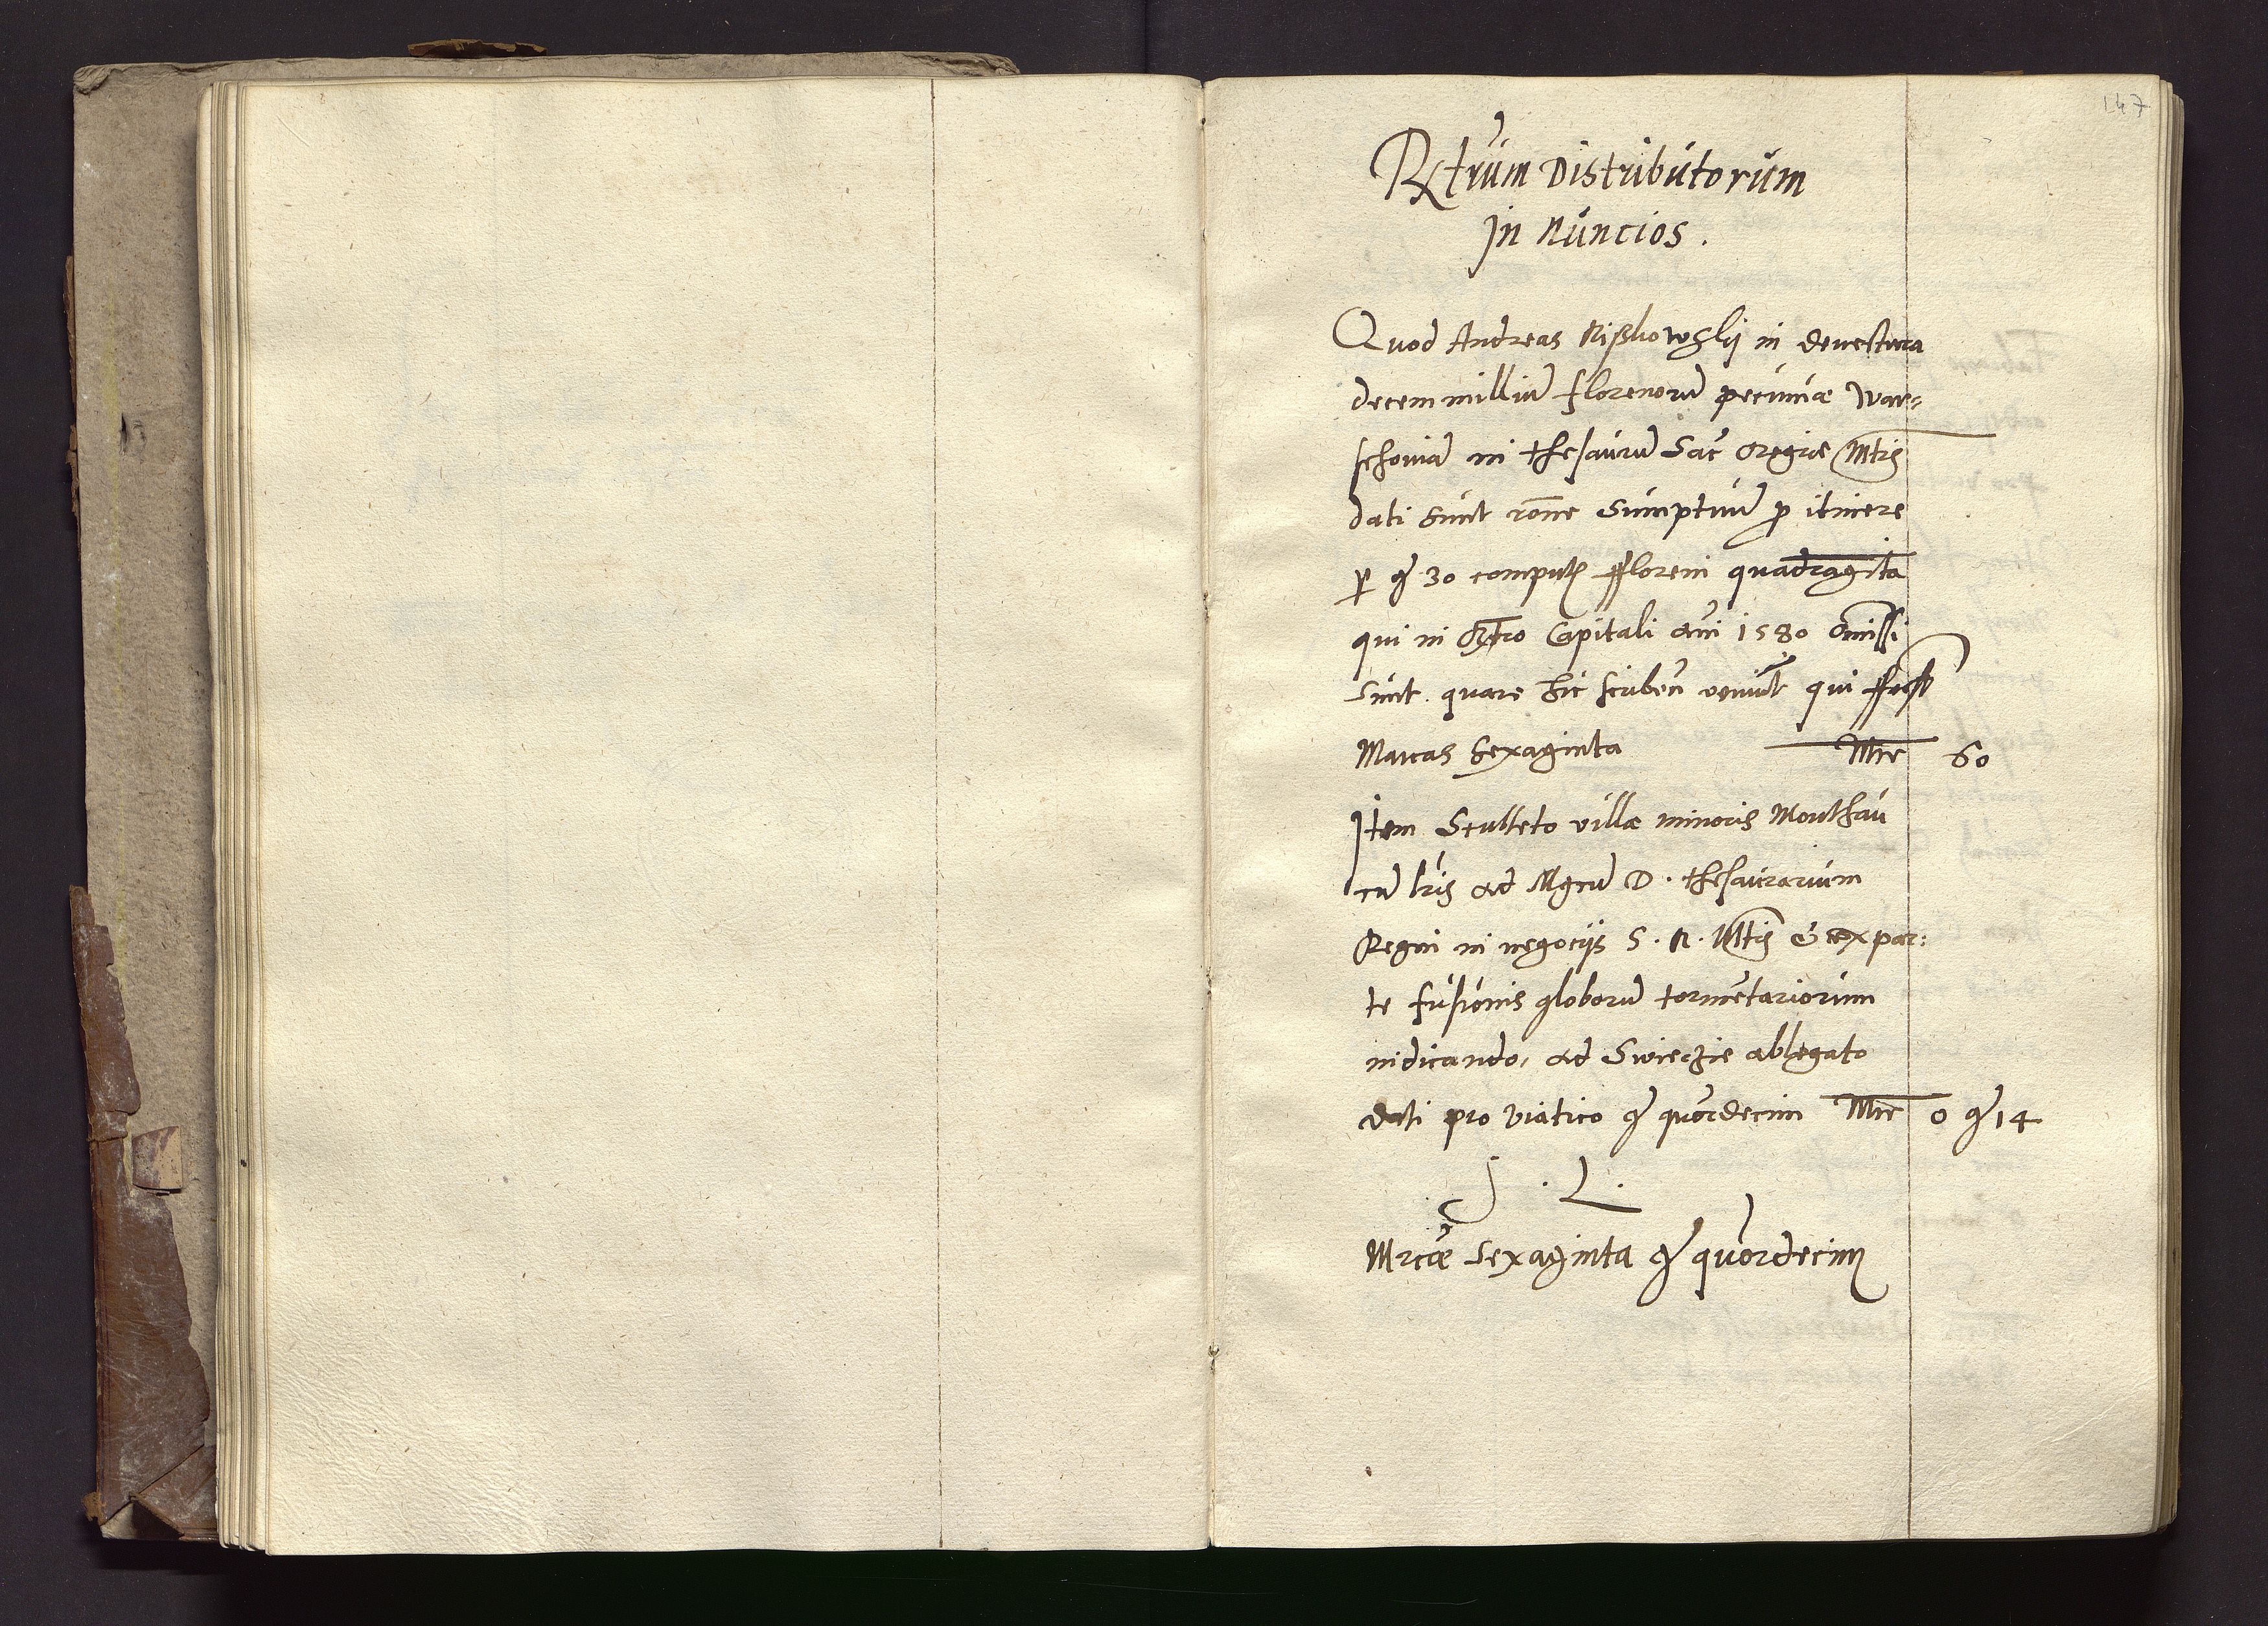 147
Rtrum Distributorum
In Nuncios.
Quod Andreas Rißkowsky in devectura
decem milliu florenoru pecuniæ War=
schoviā in thesaurū Sac Regiæ Mtis
dati sunt rone sumptuū p itinere
p gr 30 comput floreni quadragita
qui in Rtro Capitali Ani 1580 omissi
sunt. quare hic scriben veniūt qui
Marcas Sexaginta Mrc 60
Item Sculteto villæ minoris Monthau
cū lris ad Mgcū D. thesaurarium
Regni in negocijs S. R. Mtis & ex par:
te fusionis globorū tormētariorum
indicando, ad Swieczie ablegato
dati pro viatico gr quordecim Mrc 0 gr 14
S. L.
Mrcæ Sexaginta gr quordecim